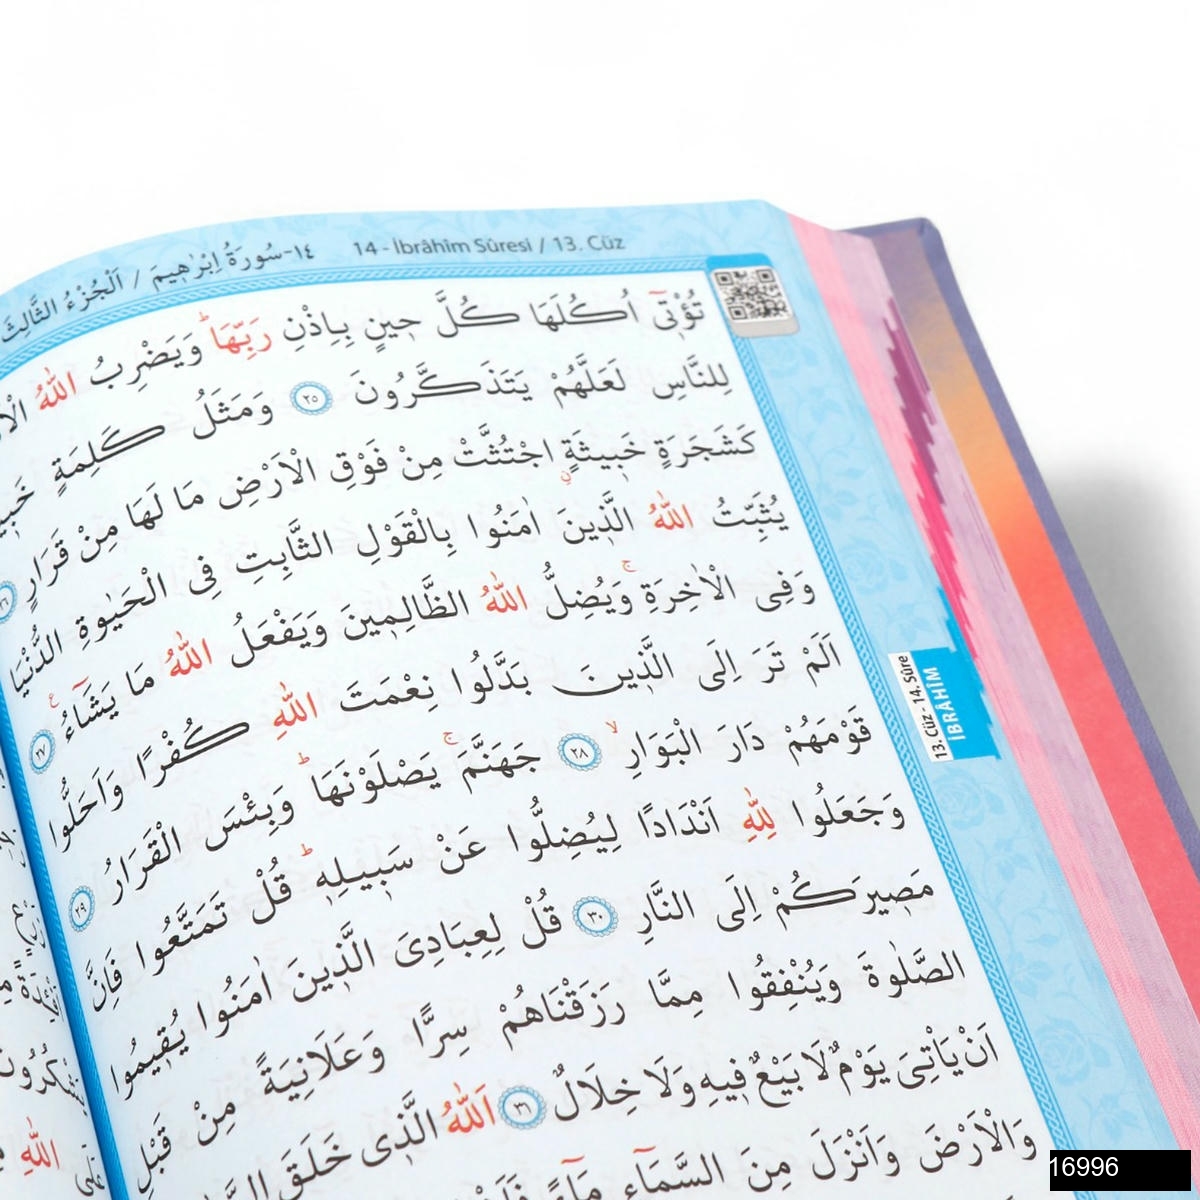 ١٤-سُورَةُ اِبْرٰهٖيمَ / اَلْجُزْءُ الثَّالِثَ
14 - İbrâhîm Sûresi / 13. Cüz
تُؤْتٖٓى اُكُلَهَا كُلَّ حٖينٍ بِاِذْنِ رَبِّهَاۜ وَيَضْرِبُ اللّٰهُ
لِلنَّاسِ لَعَلَّهُمْ يَتَذَكَّرُونَ ﴿٢٥﴾ وَمَثَلُ كَلِمَةٍ
كَشَجَرَةٍ خَبٖيثَةٍۨ اجْتُثَّتْ مِنْ فَوْقِ الْاَرْضِ مَا لَهَا مِنْ قَرَارٍ ﴿٢٦﴾
يُثَبِّتُ اللّٰهُ الَّذٖينَ اٰمَنُوا بِالْقَوْلِ الثَّابِتِ فِى الْحَيٰوةِ الدُّنْيَا
وَفِى الْاٰخِرَةِۚ وَيُضِلُّ اللّٰهُ الظَّالِمٖينَ وَيَفْعَلُ اللّٰهُ مَا يَشَٓاءُ ﴿٢٧﴾
اَلَمْ تَرَ اِلَى الَّذٖينَ بَدَّلُوا نِعْمَتَ اللّٰهِ كُفْرًا وَاَحَلُّوا
قَوْمَهُمْ دَارَ الْبَوَارِۙ ﴿٢٨﴾ جَهَنَّمَۚ يَصْلَوْنَهَاۜ وَبِئْسَ الْقَرَارُ ﴿٢٩﴾
وَجَعَلُوا لِلّٰهِ اَنْدَادًا لِيُضِلُّوا عَنْ سَبٖيلِهٖۜ قُلْ تَمَتَّعُوا فَاِنَّ
مَصٖيرَكُمْ اِلَى النَّارِ ﴿٣٠﴾ قُلْ لِعِبَادِىَ الَّذٖينَ اٰمَنُوا يُقٖيمُوا
الصَّلٰوةَ وَيُنْفِقُوا مِمَّا رَزَقْنَاهُمْ سِرًّا وَعَلَانِيَةً مِنْ قَبْلِ
اَنْ يَأْتِىَ يَوْمٌ لَا بَيْعٌ فٖيهِ وَلَا خِلَالٌ ﴿٣١﴾ اَللّٰهُ الَّذٖى خَلَقَ
وَالْاَرْضَ وَاَنْزَلَ مِنَ السَّمَٓاءِ مَٓاءً
13. Cüz - 14. Sûre
İBRÂHÎM
16996